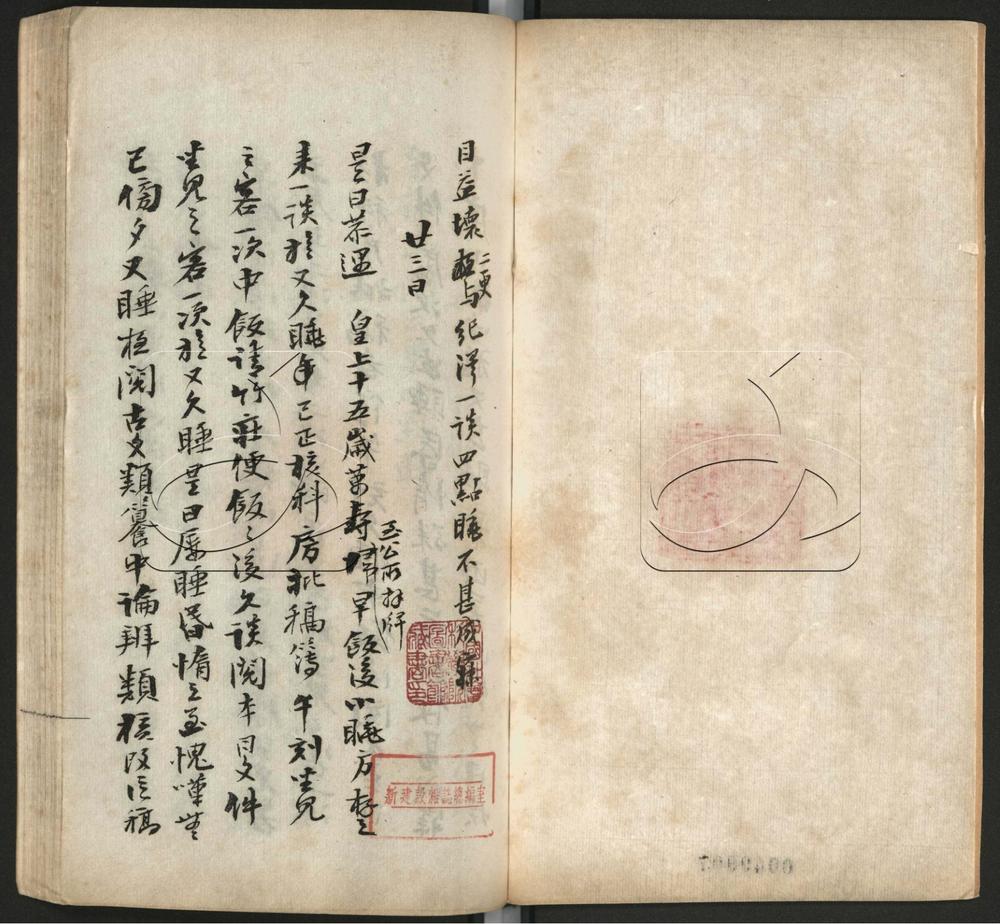 目益壞二更與紀澤一談四點睡不甚成寐
廿三日
是日恭遇 皇上十五歲萬壽至公所拜牌早飯後小睡方存之
來一談旋又久睡巳正核科房批稿簿午刻坐見
之客一次中飯請竹莊便飯飯後久談閱本日文件
坐見之客一次旋又久睡是日屢睡昏惰之至愧嘆無
已傍夕又睡夜閱古文類纂中論辨類核改信稿
新建設雜誌總編室